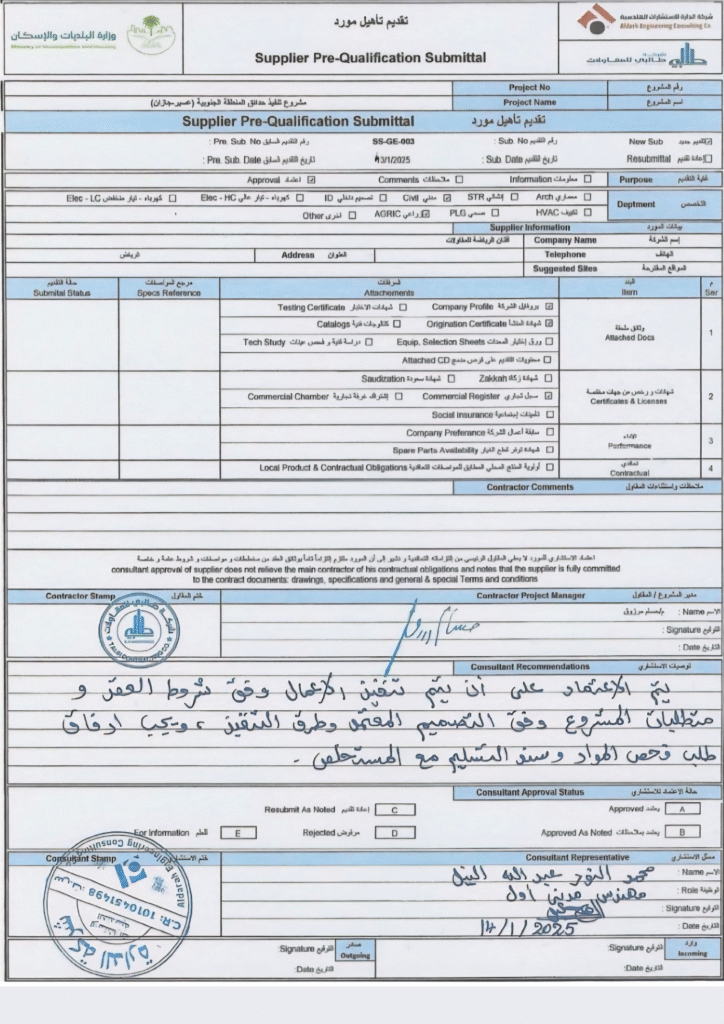 وزارة البلديات والإسكان
تقديم تأهيل مورد
Supplier Pre-Qualification Submittal
شركة الدارة للاستشارات الهندسية
Aldarh Engineering Consulting Co.
شركة طالبي للمقاولات
Project No رقم المشروع
مشروع تنفيذ حدائق المنطقة الجنوبية (عسير-جازان) Project Name اسم المشروع
Supplier Pre-Qualification Submittal تقديم تأهيل مورد
Pre. Sub. No رقم التقديم السابق: SS-GE-003 Sub. No رقم التقديم: New Sub تقديم جديد ☑
Pre. Sub. Date تاريخ التقديم السابق: 13/1/2025 Sub. Date تاريخ التقديم: Resubmittal إعادة تقديم ☐
Approval اعتماد ☑ Comments ملاحظات ☐ Information معلومات ☐ Purpose غاية التقديم
Elec - LC كهرباء - تيار منخفض ☐ Elec - HC كهرباء - تيار عالي ☐ ID تصميم داخلي ☐ Civil مدني ☑ STR إنشائي ☐ Arch معماري ☐ Deptment التخصص
Other اخرى ☐ AGRIC زراعي ☑ PLG صحي ☐ HVAC تكييف ☐
Supplier Information بيانات المورد
أفنان الرياضة للمقاولات Company Name إسم الشركة
الرياض Address العنوان Telephone الهاتف
Suggested Sites المواقع المقترحة
حالة التقديم مرجع المواصفات المرفقات البند م
Submital Status Specs Reference Attachements Item Ser
Testing Certificate شهادات الاختبار ☐ Company Profile بروفايل الشركة ☑
Catalogs كتالوجات فنية ☐ Origination Certificate شهادة المنشأ ☑ وثائق ملحقة
Tech Study دراسة فنية و فحص عينات ☐ Equip. Selection Sheets ورق إختيار المعدات ☐ Attached Docs 1
Attached CD محتويات التقديم على قرص مدمج ☐
Saudization شهادة سعودة ☐ Zakkah شهادة زكاة ☐
Commercial Chamber إشتراك غرفة تجارية ☐ Commercial Register سجل تجاري ☑ شهادات و رخص من جهات مختصة 2
Social insurance تأمينات إجتماعية ☐ Certificates & Licenses
Company Preferance سابقة أعمال الشركة ☐ الاداء
Spare Parts Availability شهادة توفر قطع الغيار ☐ Performance 3
Local Product & Contractual Obligations أولوية المنتج المحلي المطابق للمواصفات التعاقدية ☐ تعاقدي
Contractual 4
Contractor Comments ملاحظات واستثناءات المقاول
اعتماد الاستشاري للمورد لا يعفي المقاول الرئيسي من إلتزاماته التعاقدية و نشير إلى أن المورد ملتزم إلتزاماً تاماً بوثائق العقد من مخططات و مواصفات و شروط عامة و خاصة
consultant approval of supplier does not relieve the main contractor of his contractual obligations and notes that the supplier is fully committed
to the contract documents: drawings, specifications and general & special Terms and conditions
Contractor Stamp ختم المقاول Contractor Project Manager مدير المشروع / المقاول
شركة طالبي للمقاولات
طالبي
TALBI CONTRACTING CO
م/حسام مرزوق Name الاسم:
Signature التوقيع:
Date التاريخ:
Consultant Recommendations توصيات الاستشاري
يتم الاعتماد على أن يتم تنفيذ الاعمال وفق شروط العقد و
متطلبات المشروع وفق التصميم المعتمد وطرق التنفيذ ، ويجب ارفاق
طلب فحص المواد وسند التسليم مع المستخلص .
Consultant Approval Status حالة الاعتماد للاستشاري
Resubmit As Noted إعادة تقديم C Approved يعتمد A
For Information للعلم E Rejected مرفوض D Approved As Noted يعتمد بملاحظات B
Consultant Stamp ختم الاستشاري Consultant Representative ممثل الاستشاري
Aldarah Engineering Consulting
C.R: 1010451498
شركة الدارة
محمد النور عبد الله النيل Name الاسم:
مهندس مدني أول Role الوظيفة:
Signature التوقيع:
14/1/2025 Date التاريخ:
Signature التوقيع: صادر Outgoing Signature التوقيع: وارد Incoming
Date التاريخ: Date التاريخ: